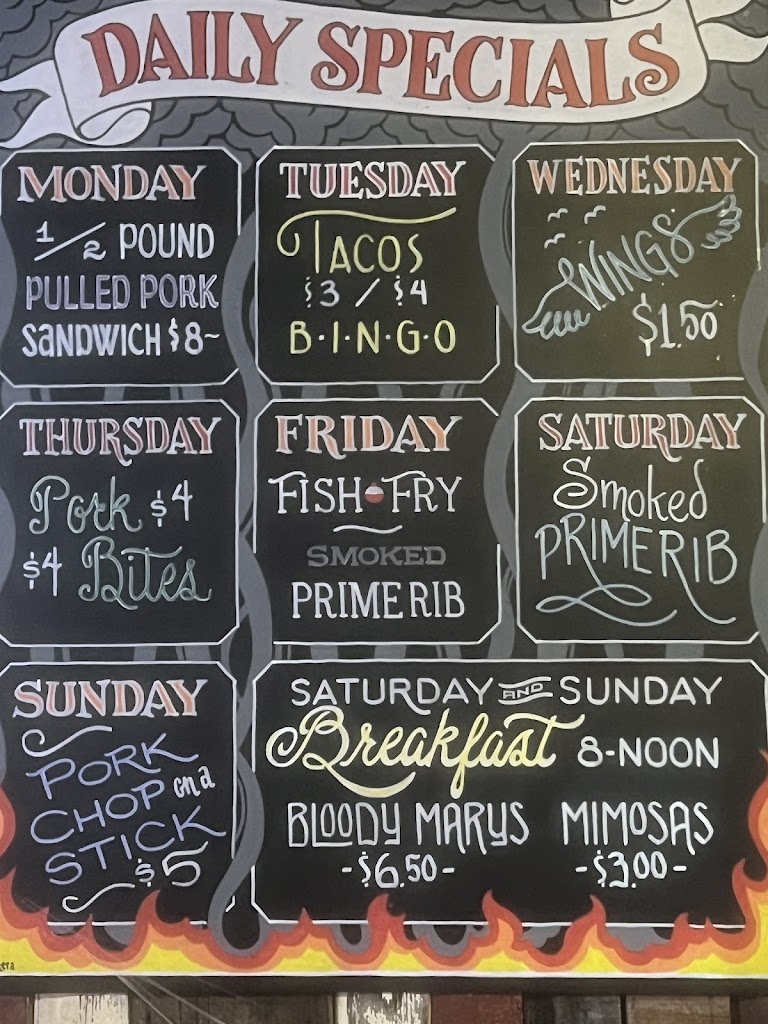 DAILY SPECIALS
MONDAY
1/2 POUND
PULLED PORK
SANDWICH $8~
TUESDAY
TACOS
$3 / $4
B·I·N·G·O
WEDNESDAY
WINGS
$1.50
THURSDAY
Pork $4
$4 Bites
FRIDAY
FISH FRY
SMOKED
PRIME RIB
SATURDAY
Smoked
PRIME RIB
SUNDAY
PORK
CHOP on a
STICK
$5
SATURDAY AND SUNDAY
Breakfast 8-NOON
BLOODY MARYS MIMOSAS
-$6.50- -$3.00-